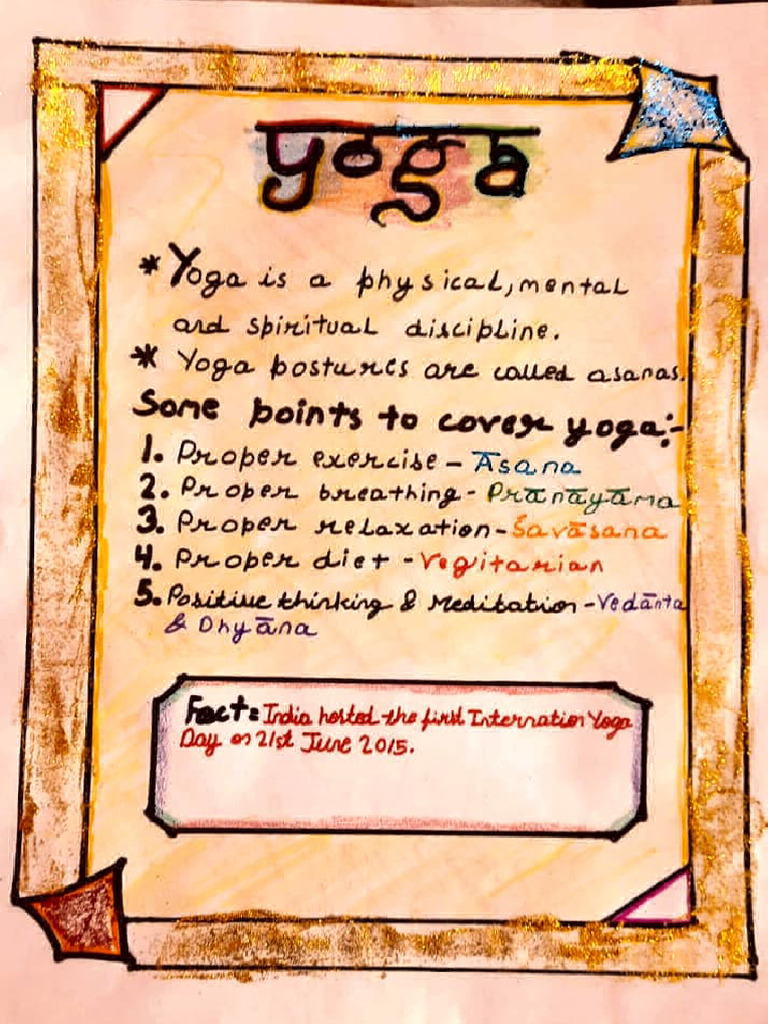 yoga
* Yoga is a physical, mental
and spiritual discipline.
* Yoga postures are called asanas.
Some points to cover yoga:-
1. Proper exercise - Āsana
2. Proper breathing - Prānāyāma
3. Proper relaxation - Śavāsana
4. Proper diet - Vegitarian
5. Positive thinking & Meditation - Vedānta
& Dhyāna
Fact: India hosted the first Internation Yoga
Day on 21st June 2015.